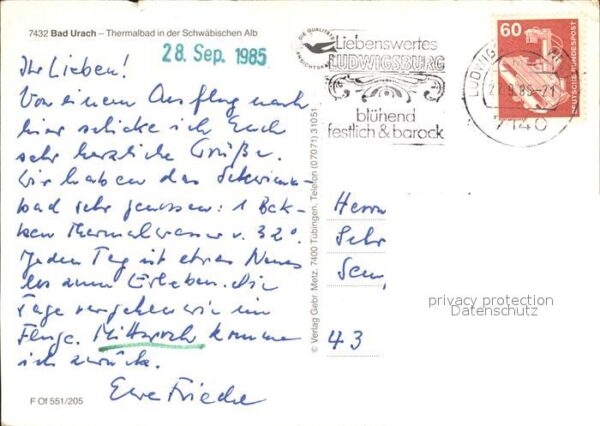 7432 Bad Urach – Thermalbad in der Schwäbischen Alb
28. Sep. 1985
Ihr Lieben!
Von einem Ausflug nach
hier schicke ich Euch
sehr herzliche Grüße.
Wir haben das Schwimm-
bad sehr genossen: 1 Bek-
ken Thermalwasser v. 32°.
Jeden Tag ist etwas Neues
los zum Erleben. Die
Tage vergehen wie im
Fluge. Mittwoch komme
ich zurück.
Eure Friede
F Of 551/205
© Verlag Gebr. Metz, 7400 Tübingen, Telefon (07071) 31051
DIE QUALITÄTS
ANSICHTSKARTE
Liebenswertes
LUDWIGSBURG
blühend
festlich & barock
LUDWIGSBURG
7140
60
DEUTSCHE BUNDESPOST
Herrn
43
privacy protection
Datenschutz